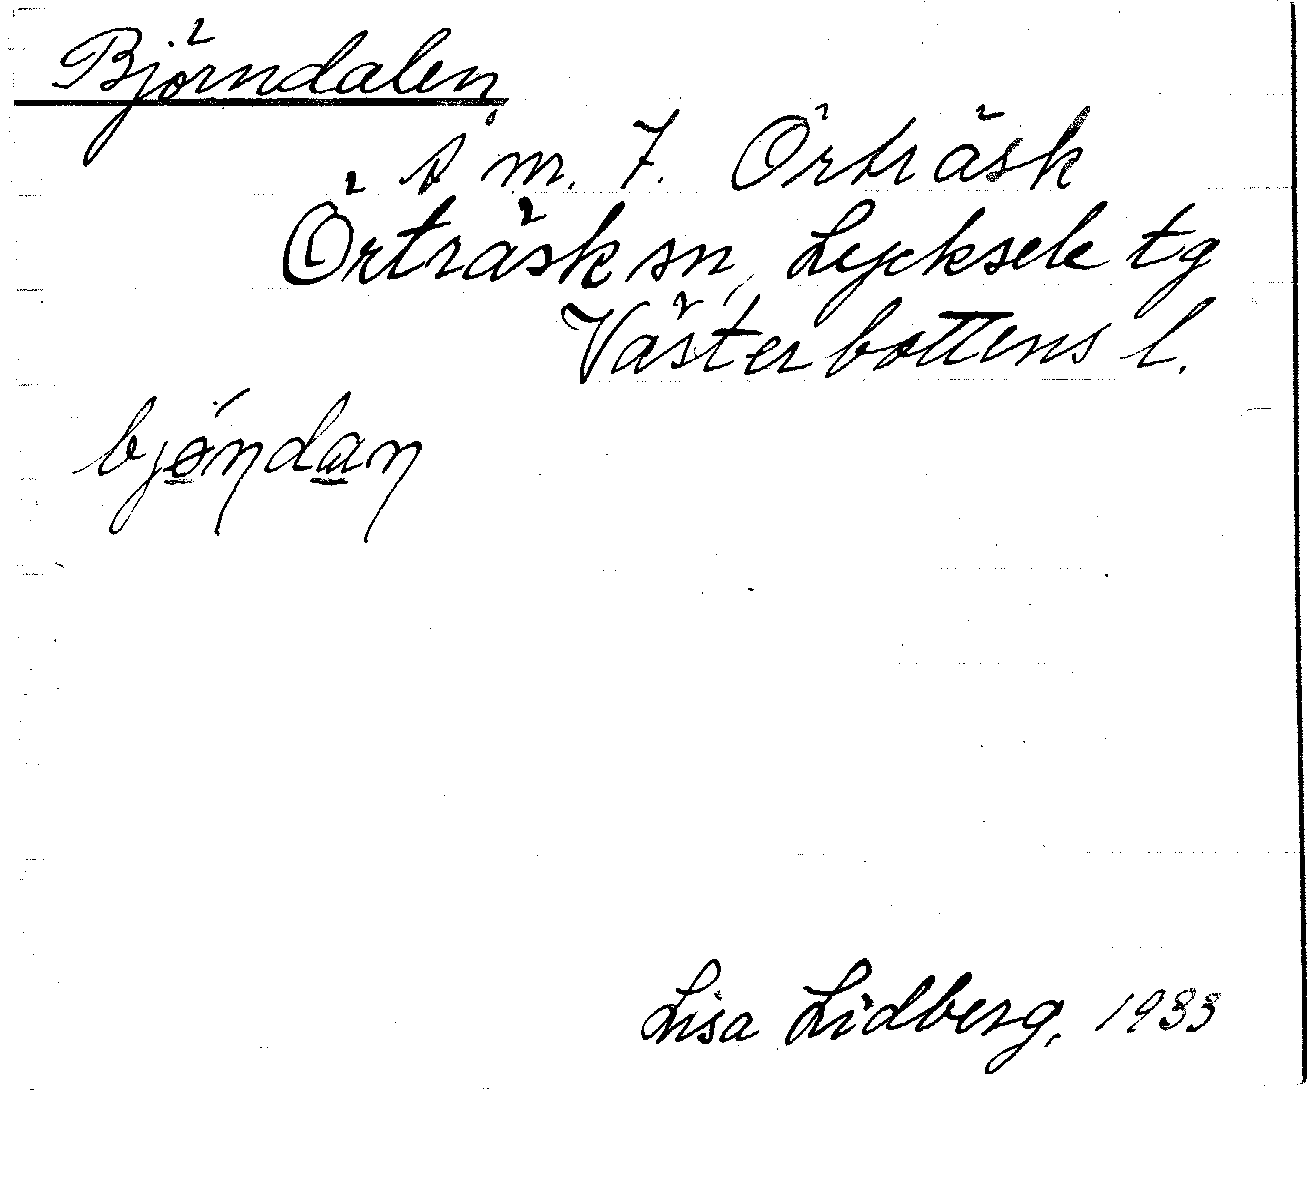 Björndalen
s m. 7. Örträsk
Örträsk sn, Lycksele tg
Västerbottens l.
bjøn̡dan̡
Lisa Lidberg, 1933